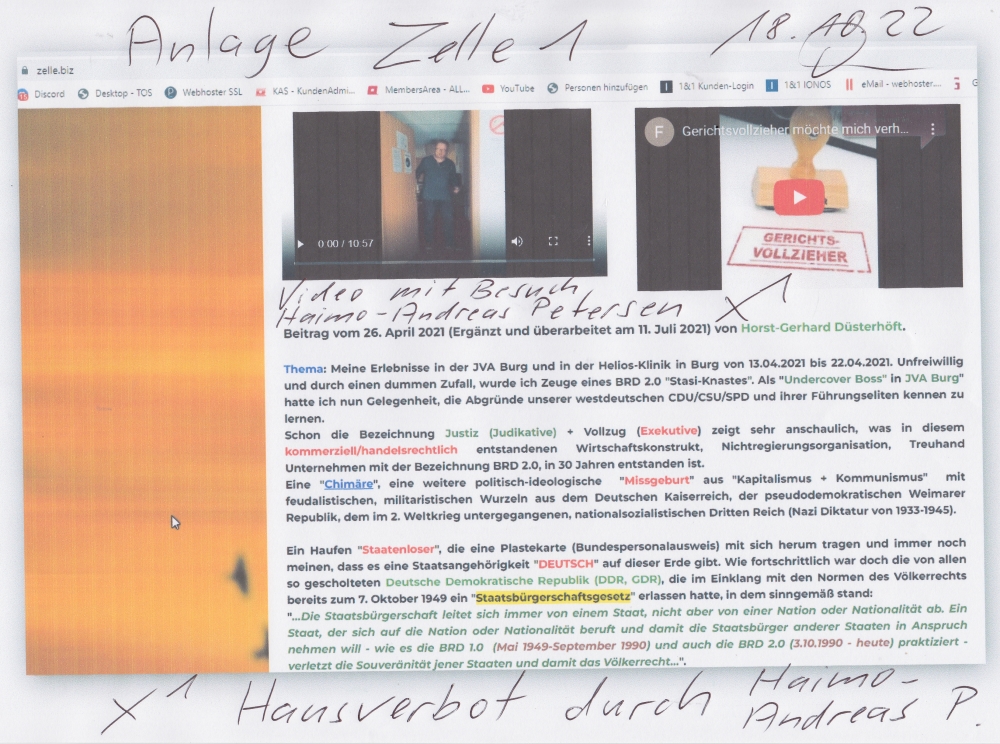 Anlage Zelle 1 18.10.22
zelle.biz
Discord Desktop - TOS Webhoster SSL KAS - KundenAdmi... MembersArea - ALL... YouTube Personen hinzufügen 1&1 Kunden-Login 1&1 IONOS eMail - webhoster....
0:00 / 10:57
F Gerichtsvollzieher möchte mich verh...
GERICHTS-
VOLLZIEHER
Video mit Besuch
Haimo-Andreas Petersen X1
Beitrag vom 26. April 2021 (Ergänzt und überarbeitet am 11. Juli 2021) von Horst-Gerhard Düsterhöft.
Thema: Meine Erlebnisse in der JVA Burg und in der Helios-Klinik in Burg von 13.04.2021 bis 22.04.2021. Unfreiwillig
und durch einen dummen Zufall, wurde ich Zeuge eines BRD 2.0 "Stasi-Knastes". Als "Undercover Boss" in JVA Burg"
hatte ich nun Gelegenheit, die Abgründe unserer westdeutschen CDU/CSU/SPD und ihrer Führungseliten kennen zu
lernen.
Schon die Bezeichnung Justiz (Judikative) + Vollzug (Exekutive) zeigt sehr anschaulich, was in diesem
kommerziell/handelsrechtlich entstandenen Wirtschaftskonstrukt, Nichtregierungsorganisation, Treuhand
Unternehmen mit der Bezeichnung BRD 2.0, in 30 Jahren entstanden ist.
Eine "Chimäre", eine weitere politisch-ideologische "Missgeburt" aus "Kapitalismus + Kommunismus" mit
feudalistischen, militaristischen Wurzeln aus dem Deutschen Kaiserreich, der pseudodemokratischen Weimarer
Republik, dem im 2. Weltkrieg untergegangenen, nationalsozialistischen Dritten Reich (Nazi Diktatur von 1933-1945).
Ein Haufen "Staatenloser", die eine Plastekarte (Bundespersonalausweis) mit sich herum tragen und immer noch
meinen, dass es eine Staatsangehörigkeit "DEUTSCH" auf dieser Erde gibt. Wie fortschrittlich war doch die von allen
so gescholteten Deutsche Demokratische Republik (DDR, GDR), die im Einklang mit den Normen des Völkerrechts
bereits zum 7. Oktober 1949 ein "Staatsbürgerschaftsgesetz" erlassen hatte, in dem sinngemäß stand:
"...Die Staatsbürgerschaft leitet sich immer von einem Staat, nicht aber von einer Nation oder Nationalität ab. Ein
Staat, der sich auf die Nation oder Nationalität beruft und damit die Staatsbürger anderer Staaten in Anspruch
nehmen will - wie es die BRD 1.0 (Mai 1949-September 1990) und auch die BRD 2.0 (3.10.1990 - heute) praktiziert -
verletzt die Souveränität jener Staaten und damit das Völkerrecht...".
X1 Hausverbot durch Haimo-
Andreas P.